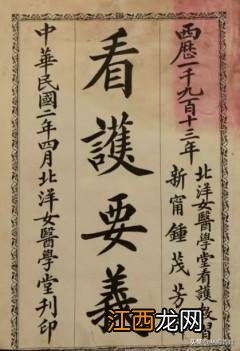 西歷一千九百十三年
北洋女醫學堂看護教習
新甯鍾茂芳
看護要義
中華民國二年四月北洋女醫學堂刋印
江西龙网